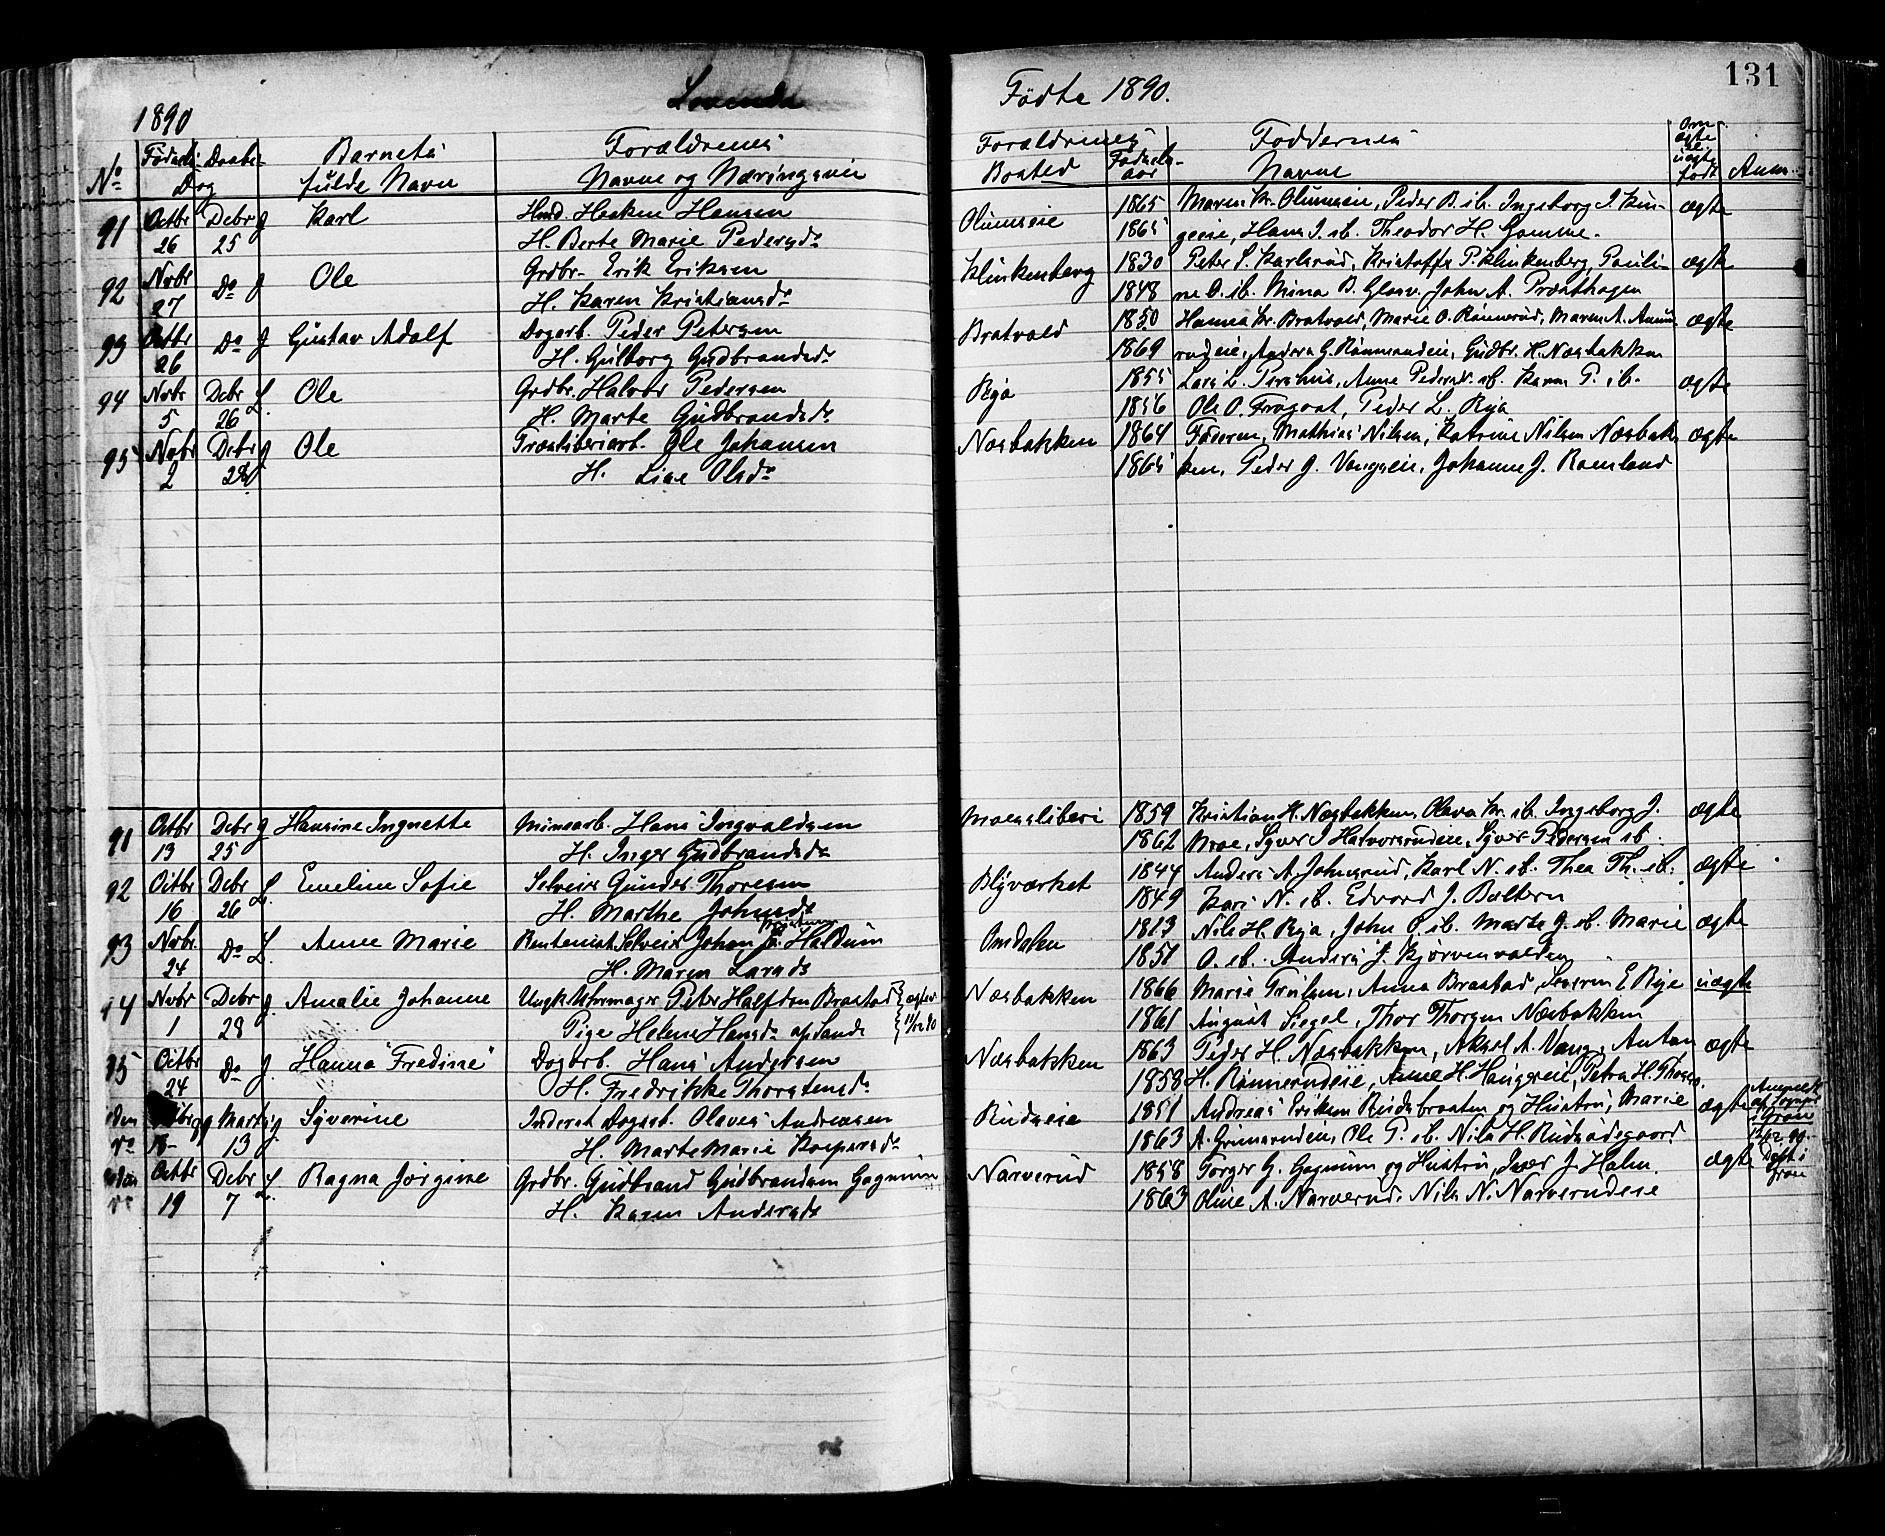 1890
Födte 1890.
131
No
Fødsels-
Daabs-
Dag
Barnets
fulde Navn
Forældrenes
Navne og Næringsvei
Forældrenes
Bosted
Fødsels-
aar
Faddernes
Navne
Om
ægte
el.
uægte
født
Anm.
91 Octbr 26 Debr 25 J Karl
Haaken Hansen
H. Berte Marie Pedersdr
Olumseie
1865
1865
Maren Kr. Olumseie, Peder B. ib. Ingeborg J.
Hans J. ib. Theodor H. ægte
92 Novbr 27 Do J Ole
Grdbr. Erik Eriksen
H. Karen Kristiansdr
Klinkenberg
1830
1848
Peter S. Karlsrud, Kristoffer P. Klinkenberg, Pauli-
ne O. ib. Mina B. John A. Prosthagen
ægte
93 Octbr 26 Do J Gustav Adolf
Dagarb. Peder Petersen
H. Gulborg Gudbrandsdr
Bratvold
1850
1869
Hannes Kr. Bratvold, Marie O. Rønnerud, Maren A.
rudeie, Anders G. Rønnerudeie, Gudbr. H. Næsbakken
ægte
94 Novbr 5 Debr 26 L. Ole
Grdbr. Halvor Pedersen
H. Marte Gudbrandsdr
Røja
1855
1856
Lars L. Pershus, Anne Pedersdr. ib. Karen P. ib.
Ole O. Peder L. Røja
ægte
95 Novbr 2 Debr 28 J Ole
Træsliberiarb. Ole Johansen
H. Lise Olsdr
Næsbakken
1864
1865
Faderen, Mathias Nilsen, Katrine Nilsen Næsbak-
ken, Peder J. Vangseie, Johanne J. Ramland
ægte
91 Octbr 13 Debr 25 J Hansine Ingnette
Minearb. Hans Ingvaldsen
H. Inger Gudbrandsdr
1859
1862
Kristian H. Næsbakken, Olava Kr. ib. Ingeborg J.
Moe, Syver J. Syver Pedersen ib.
ægte
92 Octbr 16 Debr 26 L. Emeline Sofie
Selveier Gunder Thoresen
H. Marthe Johnsdr
Blyværket
1844
1849
Anders A. Johnsrud, Karl N. ib. Thea Th. ib.
Kari N. ib. Edvard J.
ægte
93 Novbr. 24 Do L. Anne Marie
Selveier Johan
H. Maren Larsdr
1813
1851
Nils H. Røja, John O. ib. Marte G. ib. Marie
O. ib. Anders J.
ægte
94 Novbr 1 Debr 28 J. Amalie Johanne
Ungk. Uhrmager Peter Halfdan Braastad
Pige Helene Hansdr af Land
Næsbakken
1866
1861
Marie Trulsen, Anna Braastad, Severin E. Røje
August Siegel, Thor Thorsen Næsbakken
uægte
95 Octbr 24 Do J. Hanna "Fredine"
Dagarb. Hans Andersen
H. Fredrikke Thorstensdr
Næsbakken
1863
1858
Peder H. Næsbakken, Aksel A. Vang, Anton
H. Rønnerudeie, Anne H. Haugseie, Petra H.
ægte
uden No 18 Marts 13 J Syverine
Inderst Dagarb. Olaves Andreassen
H. Marte Marie Kaspersdr
Rudseie
1851
1863
Andreas Eriksen Rudsbraaten og Hustru, Marie
A. Grimsrudeie, Ole P. ib. Nils H. Rudsødegaard
ægte
Anmeldt
i Gran
uden No Octbr 19 Debr 7 L Ragna Jørgine
Grdbr. Gudbrand Gudbrandsen Gagnum
H. Karen Andersdr
Narverud
1858
1863
Torger G. Gagnum og Hustru, Iver J. Holm.
Oline A. Narverud. Nils N. Narverudeie
ægte
Døbt i
Gran